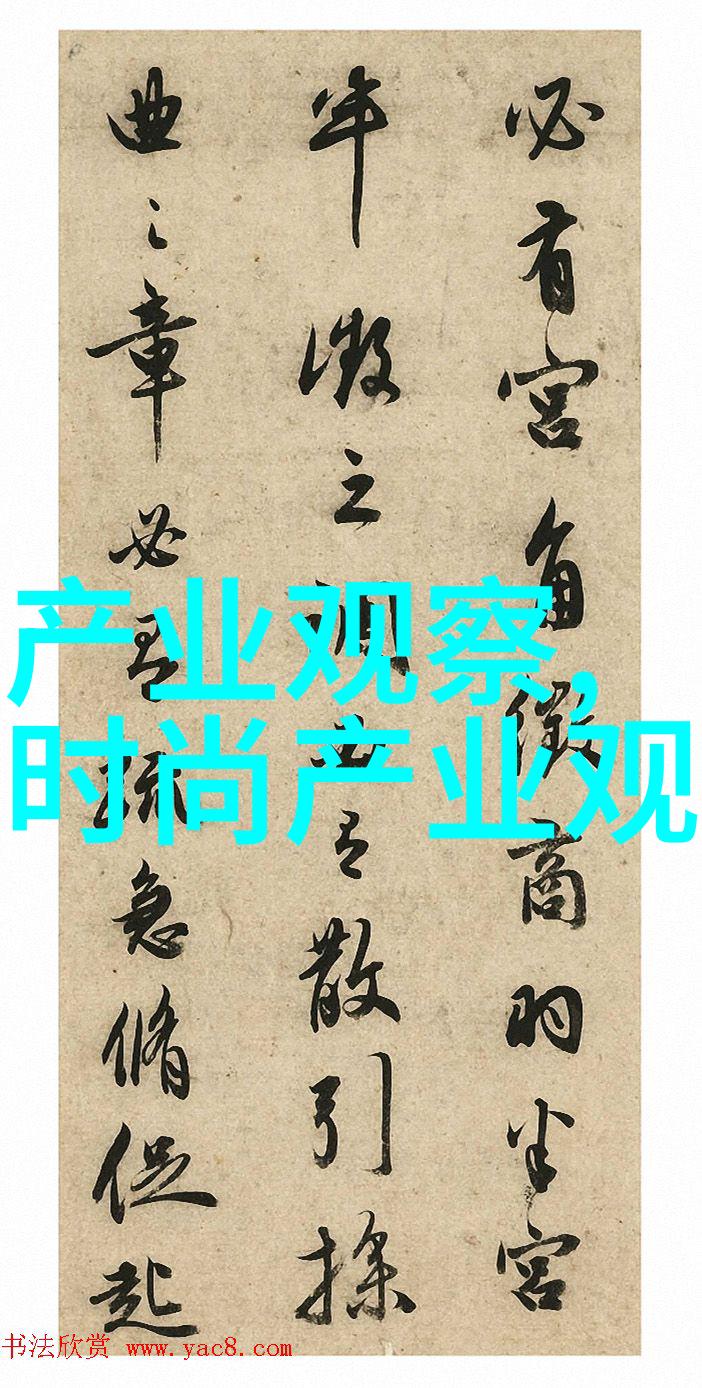 必有宫角徵商羽半宫
半徵之调必有散引操
曲之章必有疏急脩促起
产业观察,
时尚产业观
书法欣赏 www.yac8.com